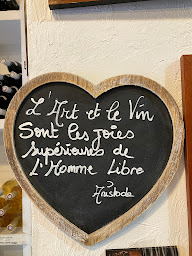 L'Art et le Vin
Sont les joies
supérieures de
L'Homme Libre
Aristode